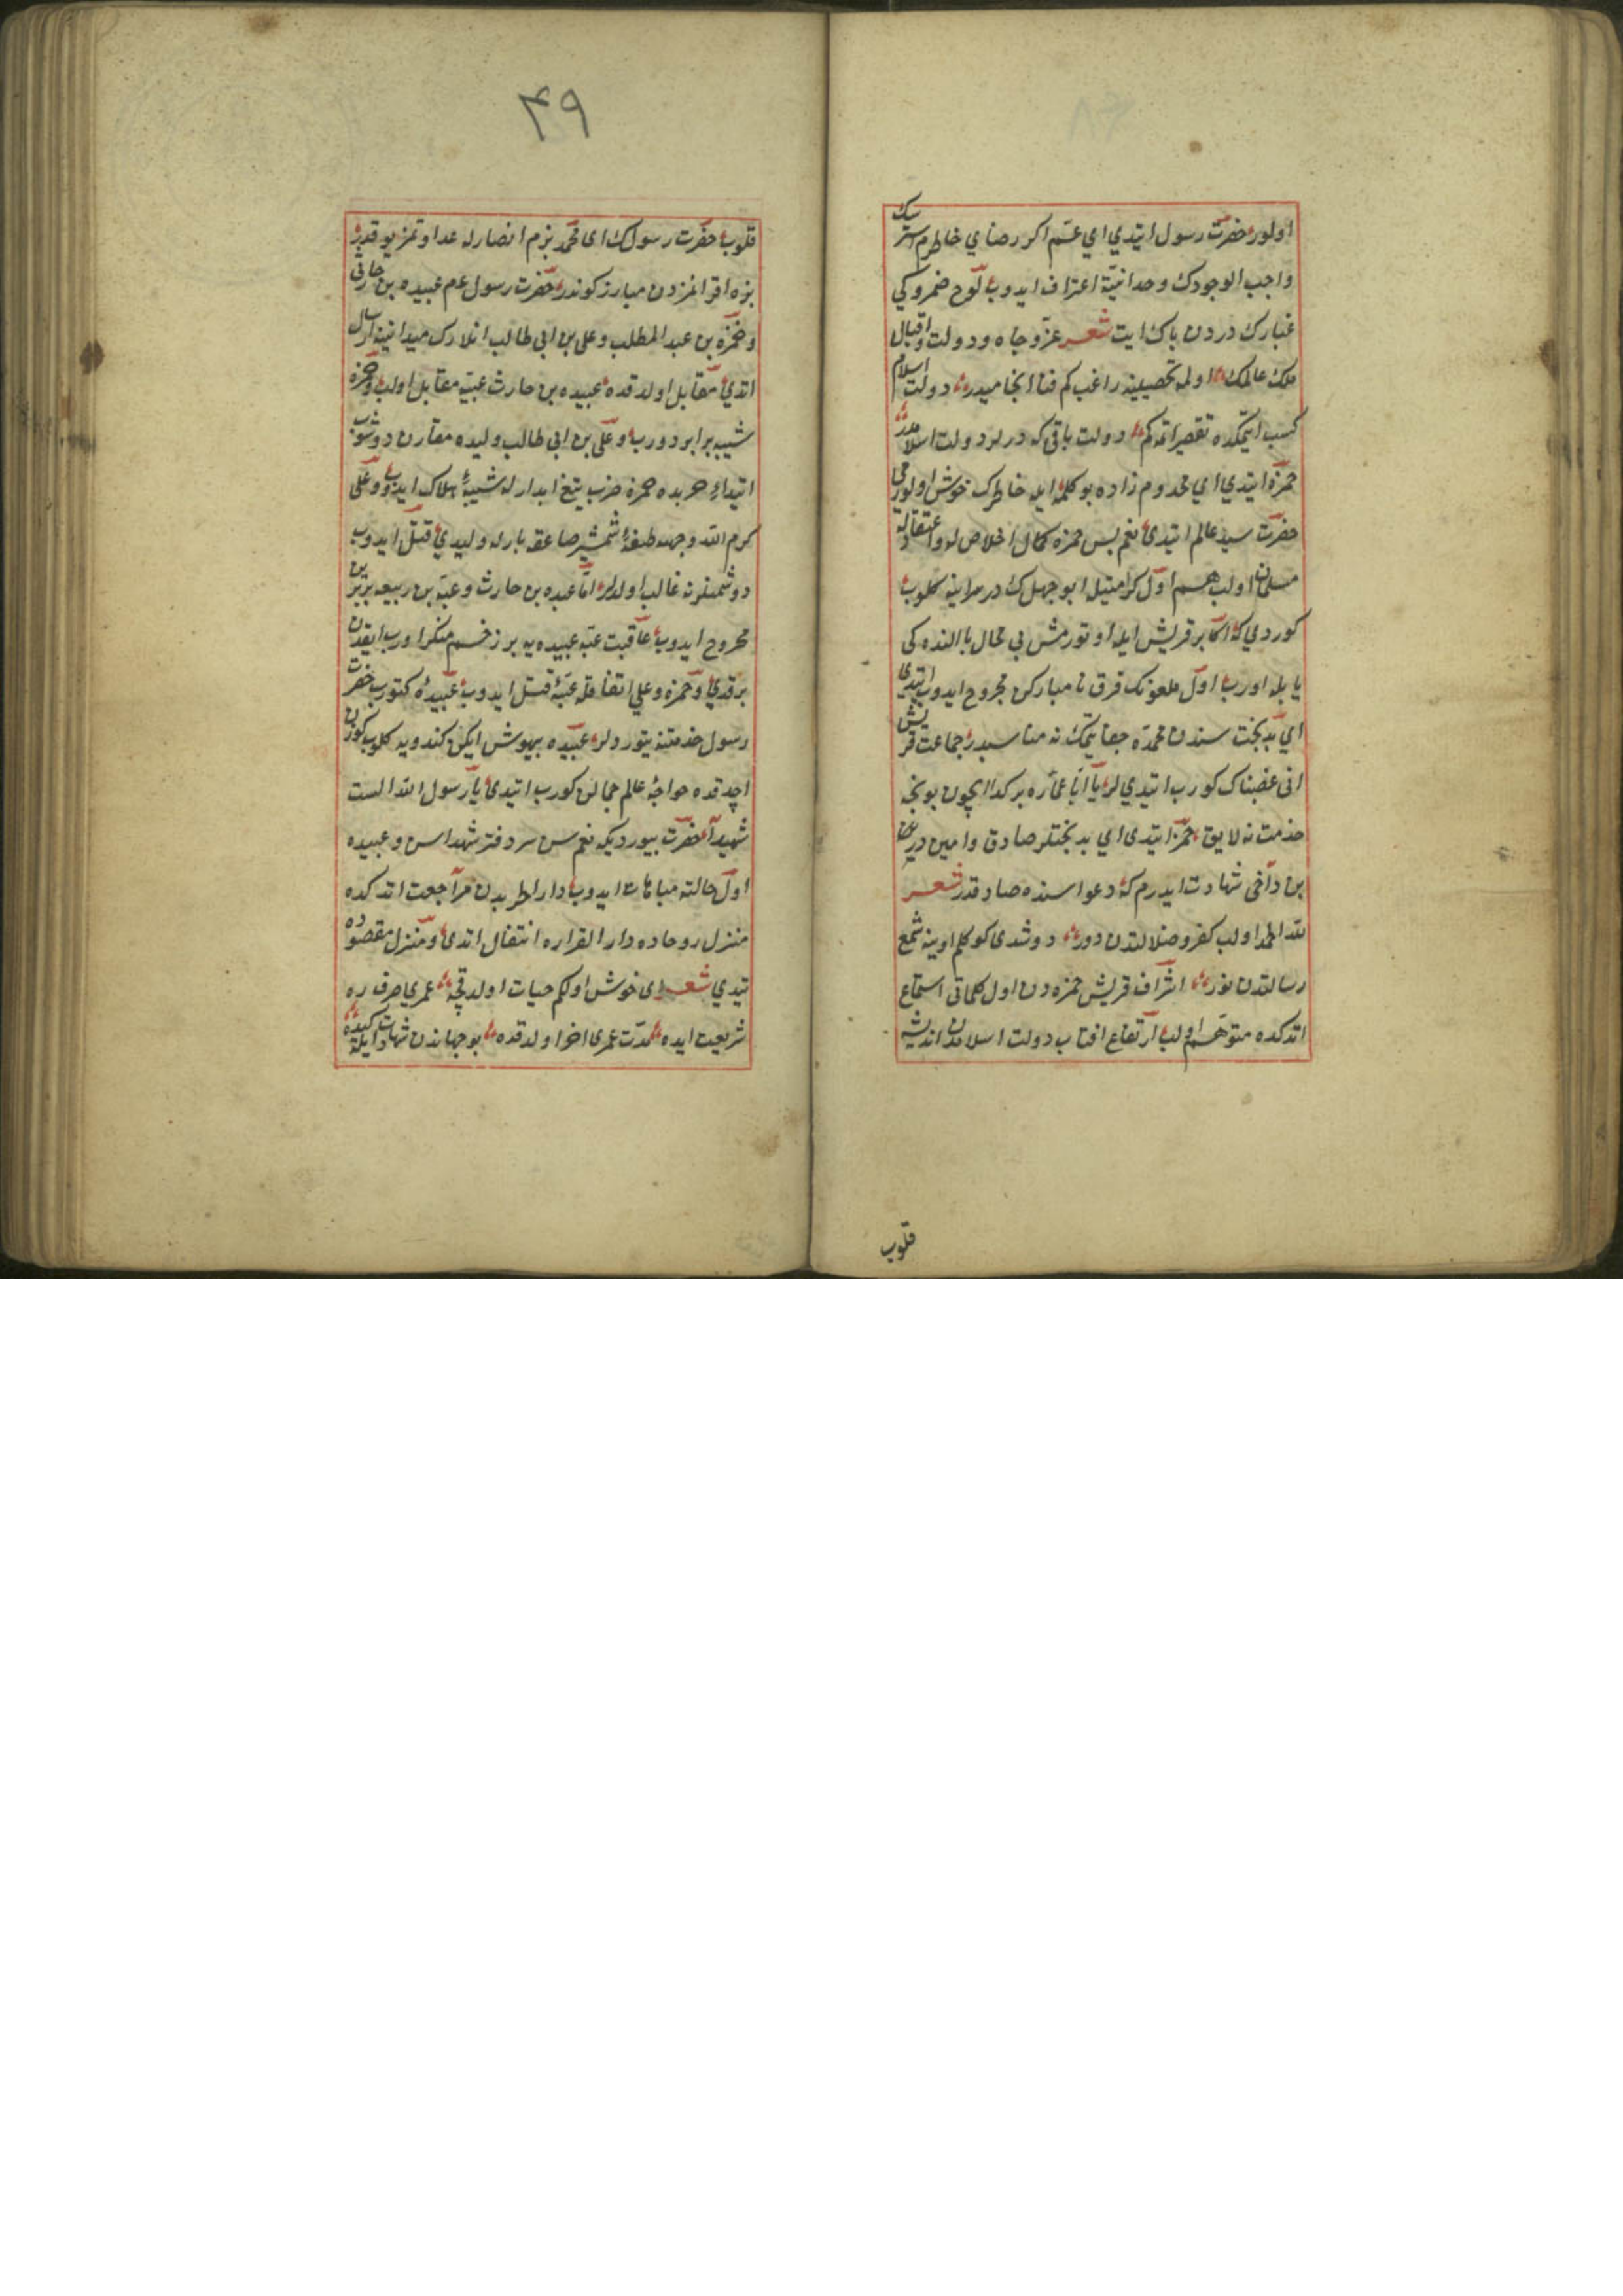 اولور حضرت رسول ایتدی ای عمم اکر رضای خاطرم استرسک
واجب الوجودک وحدانیتنه اعتراف ایدوب لوح ضمیرکی
غبار کدردن پاک ایت شعر عز و جاه و دولت و اقبال
ملک عالمک اولمه تحصیلینه راغب کم فنا انجامیدر دولت اسلام
کسب ایتمکده تقصیر اتمه کم دولت باقی که درلر دولت اسلامدر
حمزه ایتدی ای مخدوم زاده بو کلمه ایله خاطرک خوش اولورمی
حضرت سید عالم ایتدی نعم پس حمزه کمال اخلاص له و اعتقادله
مسلمان اولب هم اول کرامتیله ابو جهلک درسراینه کلوب
کوردی که اکابر قریش ایله اوتورمش بی محابا النده کی
یایله اورب اول ملعونک فرق نامبارکن مجروح ایدوب ایتدی
ای بدبخت سندن محمده جفا یتمک نه مناسبدر جماعت قریش
انی غضبناک کورب ایتدیلر یا ابا عماره برکدا ایچون بونجه
خدمت نه لایق حمزه ایتدی ای بدبختلر صادق و امین در
بن داخی شهادت ایدرم که دعواسنده صادقدر شعر
لله الحمد اولب کفر و ضلالتدن دور دوشدی کوکلم اوینه شمع
رسالتدن نور اشراف قریش حمزه دن اول کلماتی استماع
اتدکده متوهم اولب ارتفاع افتاب دولت اسلامدن اندیشه
قلوب
۴۹
قلوب حضرت رسولک ای محمد بزم انصارله عداوتمز یوقدر
بزه اقرانمزدن مبارز کوندر حضرت رسول عم عبیده بن حارثی
و حمزه بن عبد المطلب و علی بن ابی طالب انلارک میداننه ارسال
اتدی مقابل اولدقده عبیده بن حارث عتبه مقابل اولب و حمزه
شیبه برابر دورب و علی بن ابی طالب ولیده مقارن دوشوب
ابتداء حربده حمزه ضرب تیغ ابدارله شیبه هلاک ایدوب و علی
کرم الله وجهه طعنه شمشیر صاعقه بارله ولیدی قتل ایدوب
دوشمنلرنه غالب اولدلر اما عبیده بن حارث و عتبه بن ربیعه بربرین
مجروح ایدوب عاقبت عتبه عبیده یه بر زخم منکر اورب ایقدن
برقدی و حمزه و علی اتفاقله عتبه قتل ایدوب عبیده کتورب حضرت
رسول خدمتنه یتوردلر عبیده بیهوش ایکن کندویه کلوب کوزن
اچدقده خواجه عالم جمالن کورب ایتدی یا رسول الله الست
شهیدا حضرت بیوردیکه نعم سن سر دفتر شهداسن و عبیده
اول حالته مباهات ایدوب دار الحربدن مراجعت اتدکده
منزل روحاده دار القراره انتقال اتدی و منزل مقصوده
یتدی شعر ای خوش اولکم حیات اولدقچه عمری صرف ره
شریعت ایده مدت عمری اخر اولدقده بو جهاندن شهادت ایله کیده